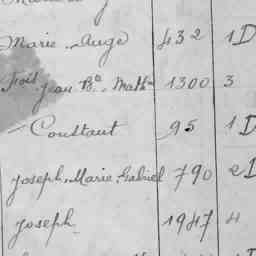 Marie-Ange 432 1D
Fois Jean Bte Math 1300 3
Constant 95 1D
Joseph, Marie, Gabriel 790 2D
Joseph 1947 4